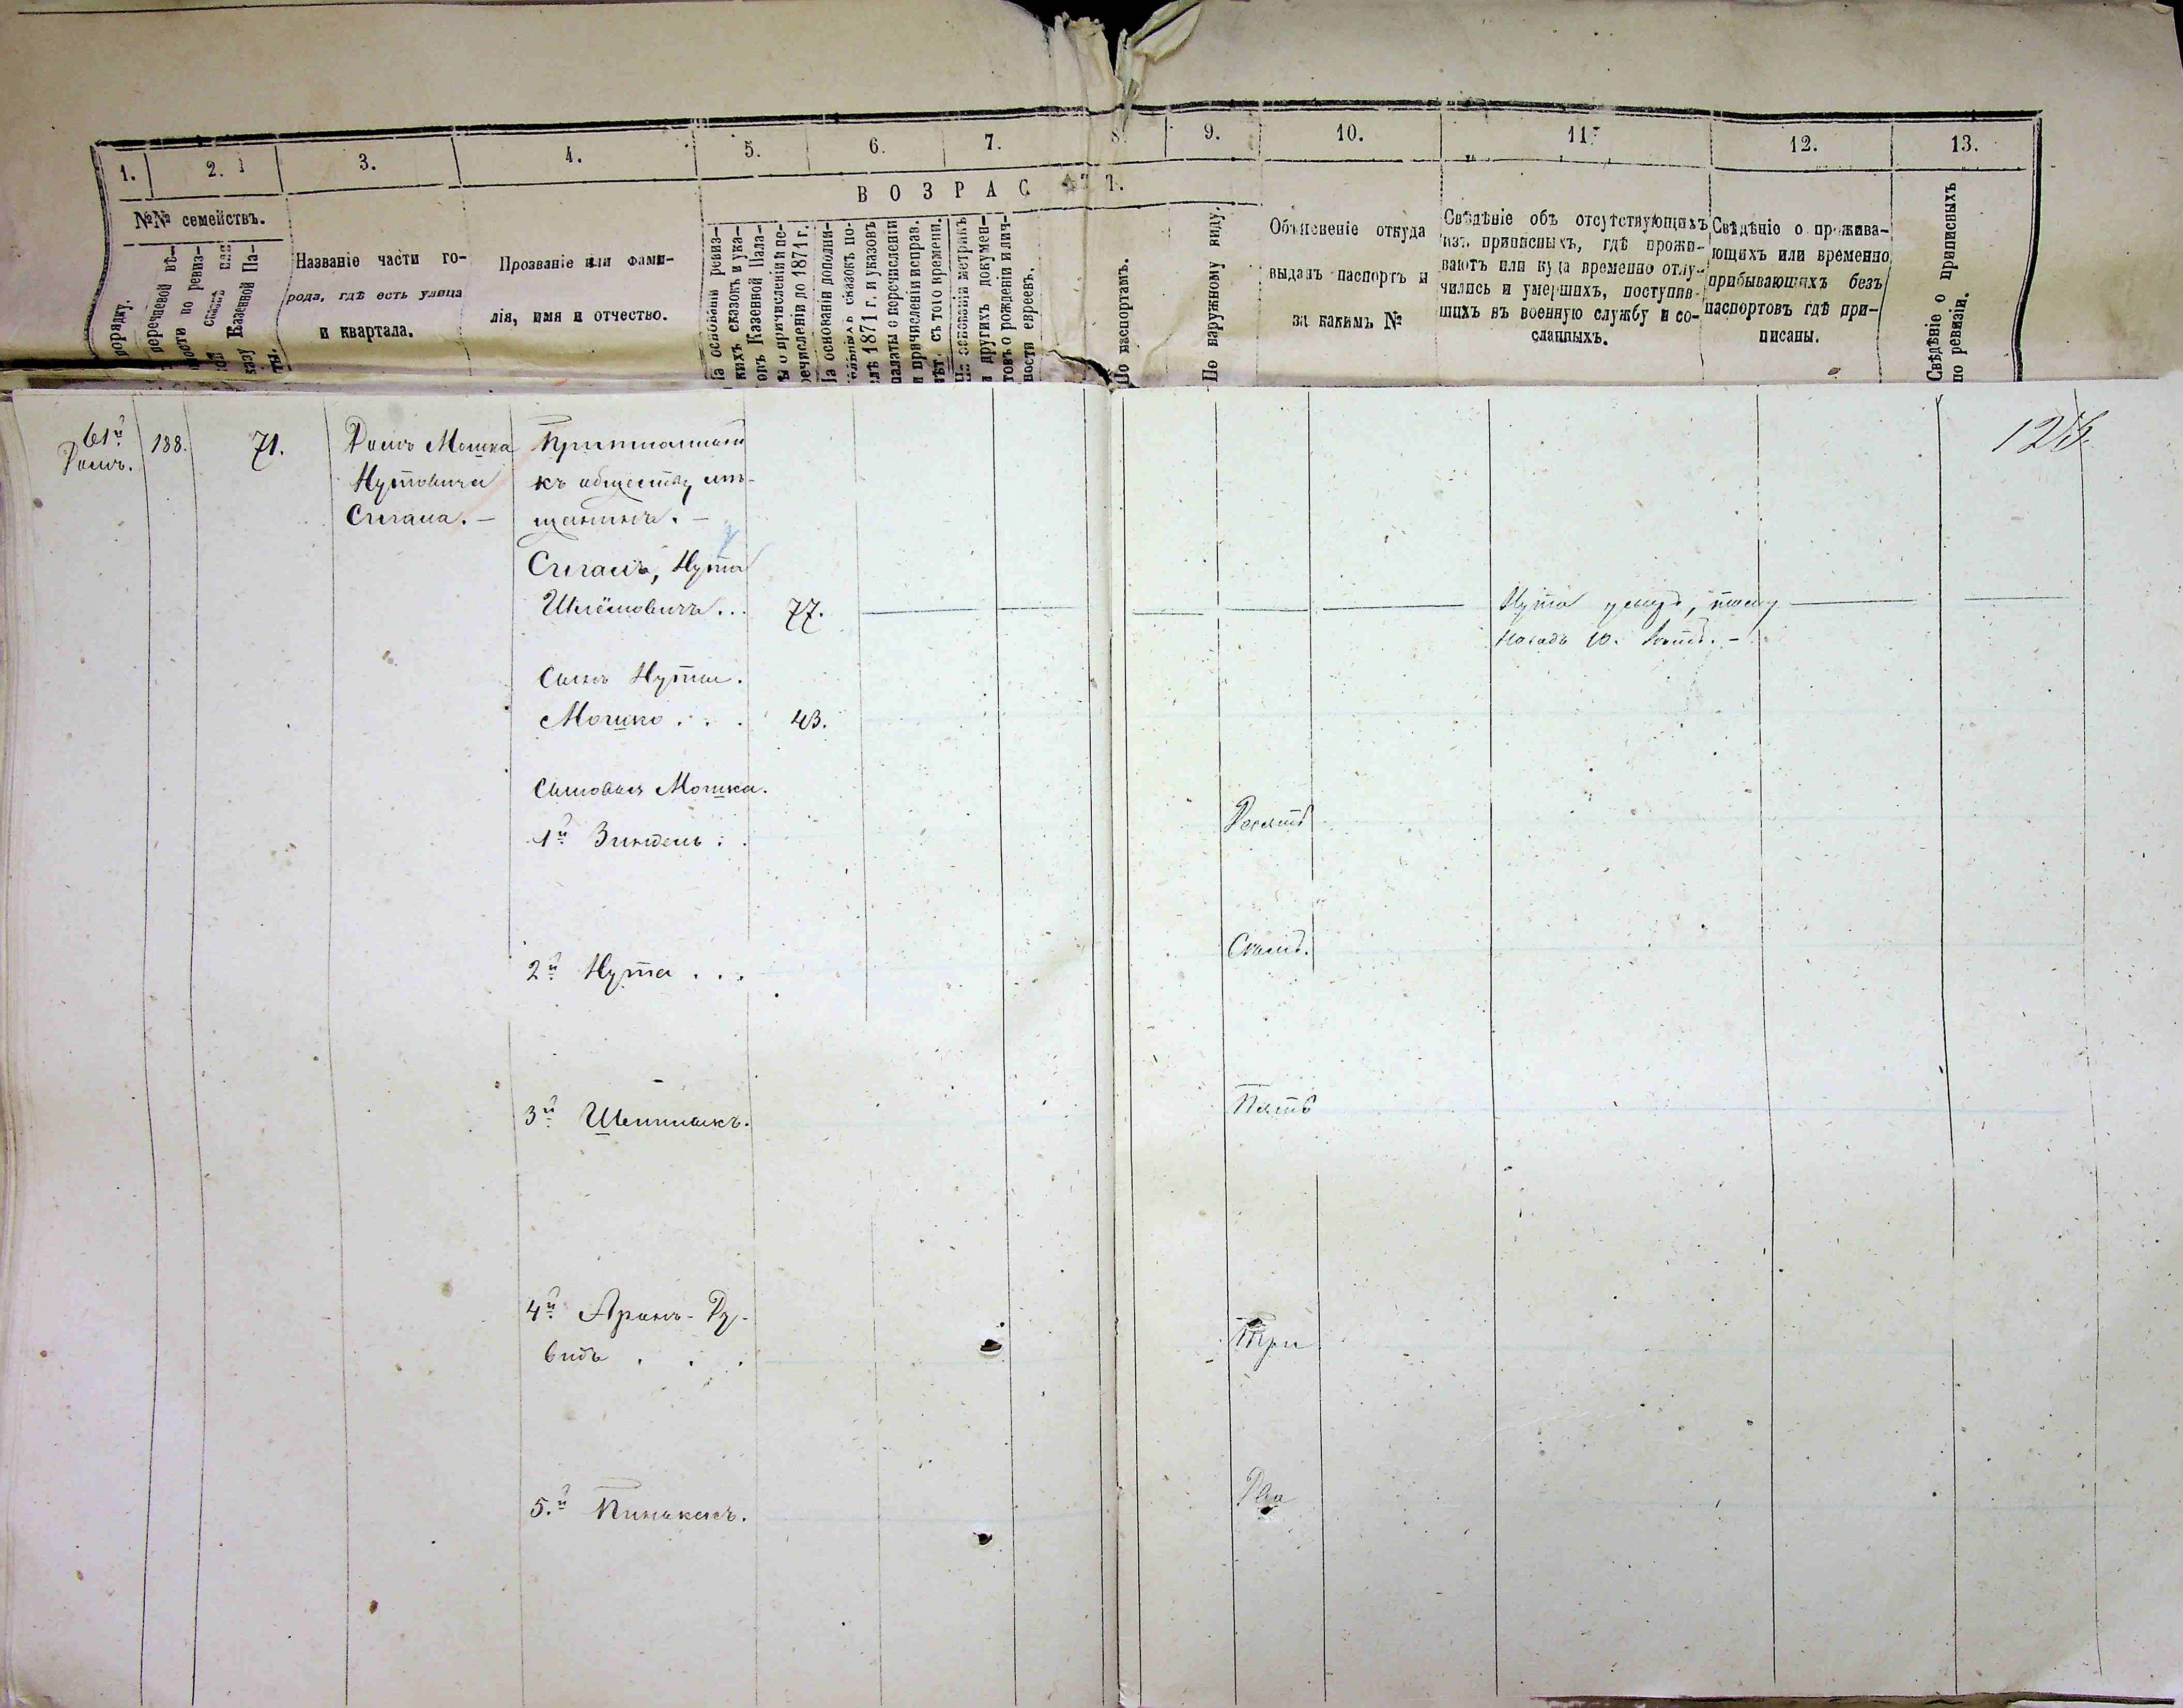 1. 2. 3. 4. 5. 6. 7. 8. 9. 10. 11. 12. 13.
ВОЗРАСТЪ.
№№ семействъ.
порядку.
перечневой вѣ-
ности по ревиз-
казу Казенной Па-
ты.
Названіе части го-
рода, гдѣ есть улица
и квартала.
Прозваніе или фами-
лія, имя и отчество.
На основаніи ревиз-
кихъ сказокъ и ука-
зовъ Казенной Пала-
ты о причисленіи и пе-
речисленіи до 1871 г.
На основаніи дополни-
тельныхъ сказокъ по-
слѣ 1871 г. и указовъ
палаты о перечисленіи
и причисленіи исправ.
лѣт. съ того времени.
На основаніи метрикъ
и другихъ докумен-
товъ о рожденіи и лич-
ности евреевъ.
По паспортамъ.
По наружному виду.
Объясненіе откуда
выданъ паспортъ и
за какимъ №
Свѣдѣніе объ отсутствующихъ
изъ приписныхъ, гдѣ прожи-
ваютъ или куда временно отлу-
чились и умершихъ, поступив-
шихъ въ военную службу и со-
сланныхъ.
Свѣдѣніе о прожива-
ющихъ или временно
прибывающихъ безъ
паспортовъ гдѣ при-
писаны.
Свѣдѣніе о приписныхъ
по ревизіи.
61й
Домъ.
188.
71.
Домъ Мошка
Нутовича
Сигала. –
Приписанный
къ обществу мѣ-
щанинъ. –
Сигалъ, Нута
Шлёмовичъ...
77.
Нута умеръ, тому
назадъ 10. лѣтъ. –
Сынъ Нуты.
Мошко . . .
43.
Сыновья Мошка.
1й Зиндель . .
Десять
2й Нута . . .
Семь.
3й
Пять
4й Аронъ-Ду-
видъ . . .
Три
5.й Пинькасъ.
Два